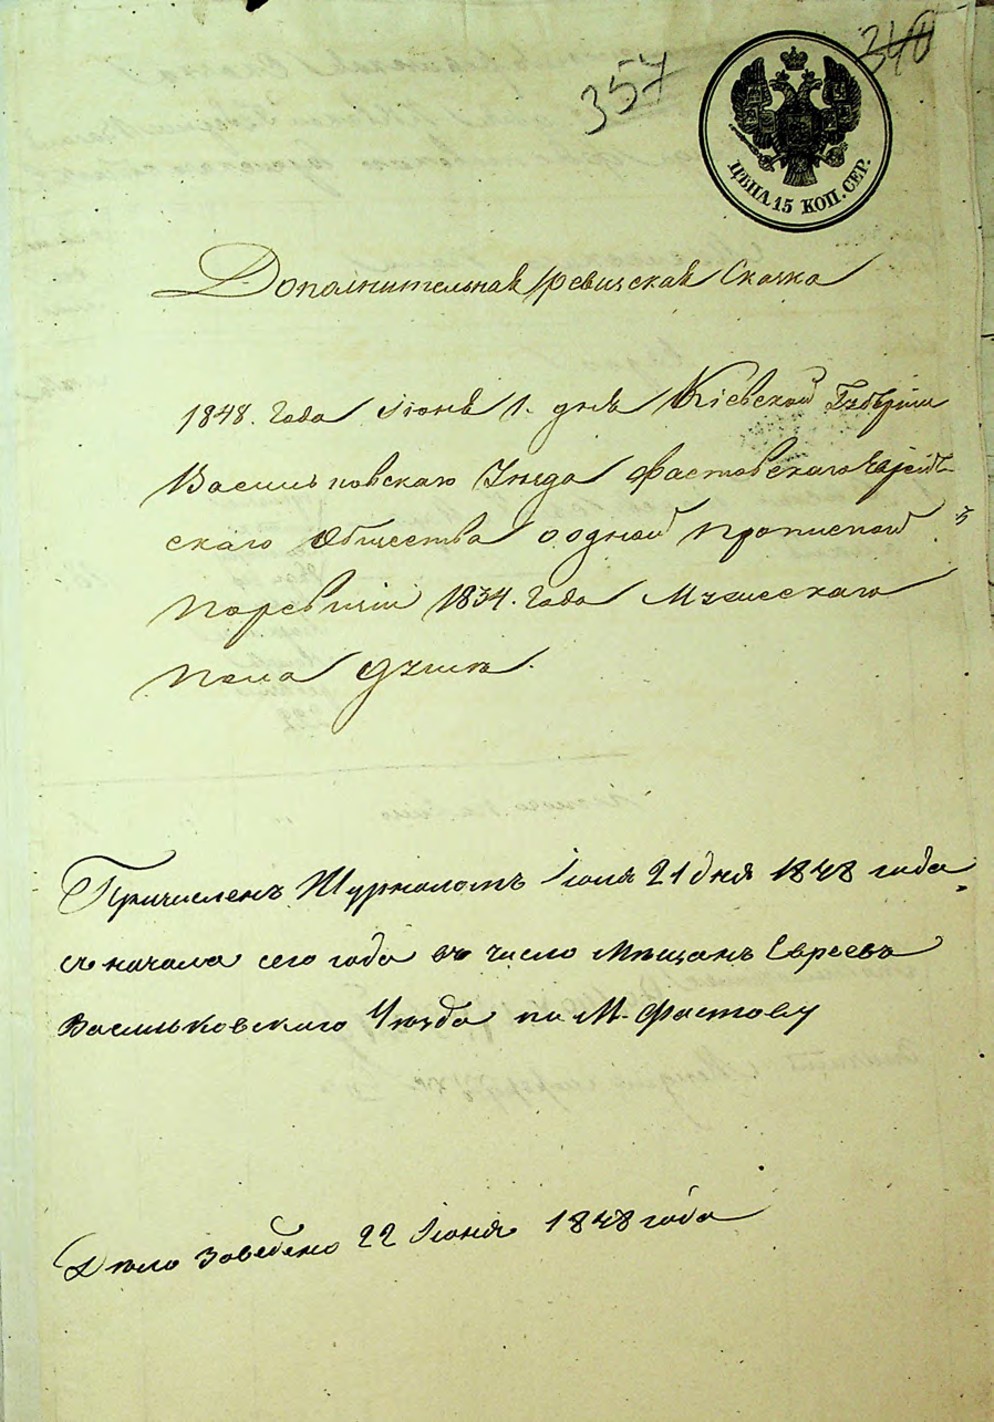 357
340
ЦѢНА 15 КОП. СЕР.
Дополнительная ревизская Сказка
1848. года Июня 1. дня Кіевской Губерніи
Васильковскаго Уезда Фастовскаго Еврей-
скаго Общества о одной прописной
по ревизіи 1834. года Мужескаго
пола души.
Причисленъ Журналомъ Іюля 21 дня 1848 года
съ начала сего года въ число Мещанъ Евреевъ
Васильковскаго Уезда по М. Фастову
Дѣло заведено 22 Іюня 1848 года